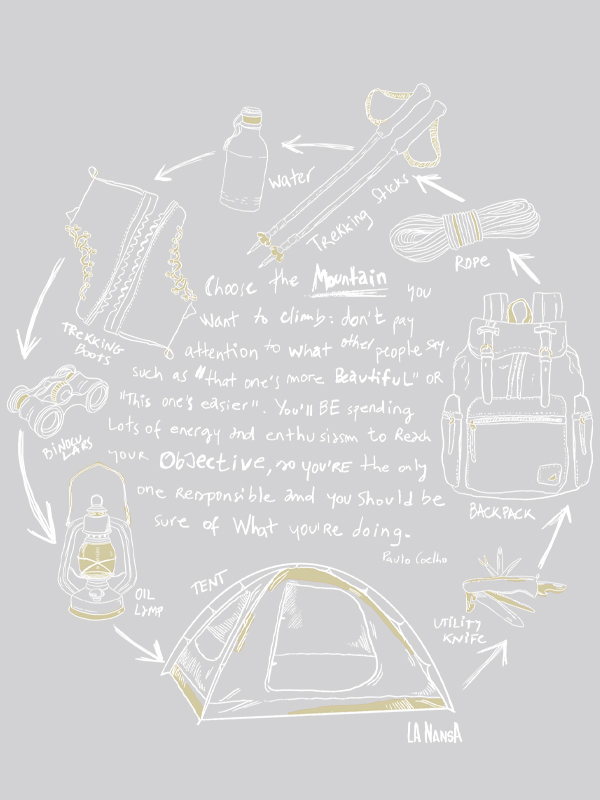 Water
Trekking Sticks
ROPE
TREKKING
BOOTS
Choose the Mountain you
want to climb: don't pay
attention to what other people say,
such as "that one's more Beautiful" or
"This one's easier". You'll BE spending
Lots of energy and enthusiasm to Reach
your Objective, so you're the only
one Responsible and you should be
sure of What you're doing.
Paulo Coelho
BINOCU
LARS
BACKPACK
OIL
LAMP
TENT
UTILITY
KNIFE
LA NANSA